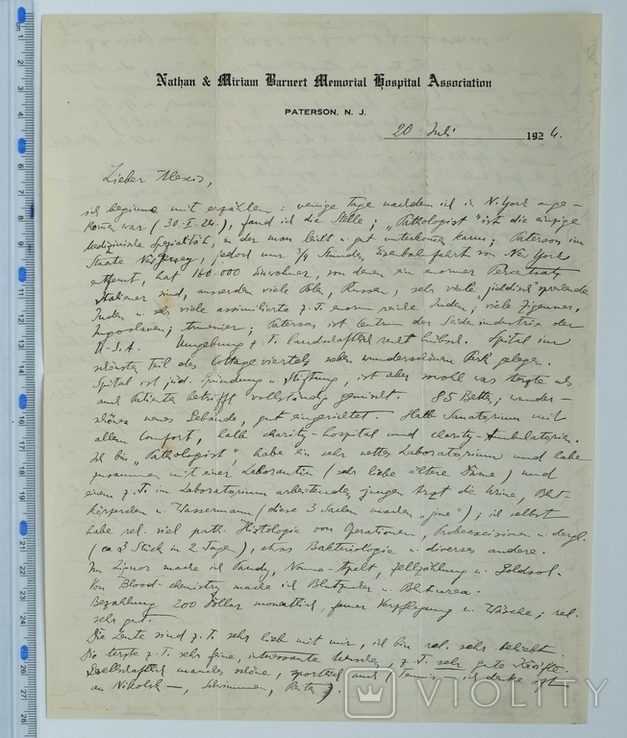 Nathan & Miriam Barnert Memorial Hospital Association
PATERSON, N. J.
20 Juli 1926.
Lieber Alexis,
ich beginne mit erzählen: wenige Tage nachdem ich in N. York ange-
kommen war (30. I. 26.), fand ich die Stelle; "Pathologist" ist die einzige
Medizinische Spezialität, in der man leicht u. gut unterkommen kann; Paterson im
Staate New Jersey, jedoch nur 3/4 Stunden Eisenbahnfahrt von New York
entfernt, hat 160.000 Einwohner, von denen ein enormer Perzentsatz
Italiener sind, ausserdem viele Polen, Russen, sehr viele jiddisch sprechende
Juden u. sehr viele assimilierte z. T. enorm reiche Juden; viele Zigeuner,
Jugoslaven; Armenier; Paterson ist Centrum der Seidenindustrie der
U.S.A. Umgebung z. T. landschaftlich recht hübsch. Spital im
schönsten Teil des Cottageviertels neben wunderschönem Park gelegen.
Spital ist jüd. Gründung u. Stiftung, ist aber sowohl was Ärzte als
auch Patienten betrifft vollständig gemischt. 85 Betten; wunder-
schönes neues Gebäude, gut eingerichtet. Halb Sanatorium mit
allem Comfort, halb charity-hospital und charity-Ambulatorien.
Ich bin "Pathologist", habe ein sehr nettes Laboratorium und habe
zusammen mit einer Laborantin (sehr liebe ältere Dame) und
einem z. T. im Laboratorium arbeitenden jungen Arzt die Urine, Blut-
körperchen u. Wassermann (diese 3 Sachen machen "sie"); ich selbst
habe rel. viel path. Histologie von Operationen, Probeexcisionen u. dergl.
(ca 3 Stück in 2 Tagen), etwas Bakteriologie u. diverses andere.
Im Liquor mache ich Pandy, Nonne-Apelt, Zellzählung u. Goldsol.
Von Blood-chemistry mache ich Blutzucker u. Bluturea.
Bezahlung 200 Dollar monatlich, ferner Verpflegung u. Wäsche; rel.
sehr gut.
Die Leute sind z. T. sehr lieb mit mir, ich bin rel. sehr beliebt.
Die Ärzte z. T. sehr feine, interessante Menschen, z. T. sehr gute Köpfe.
Gesellschaftlich manches schöne, sportlich auch (Tennis – ich denke oft
an Nikolsk –, Schwimmen, Reiten).
VIOLITY